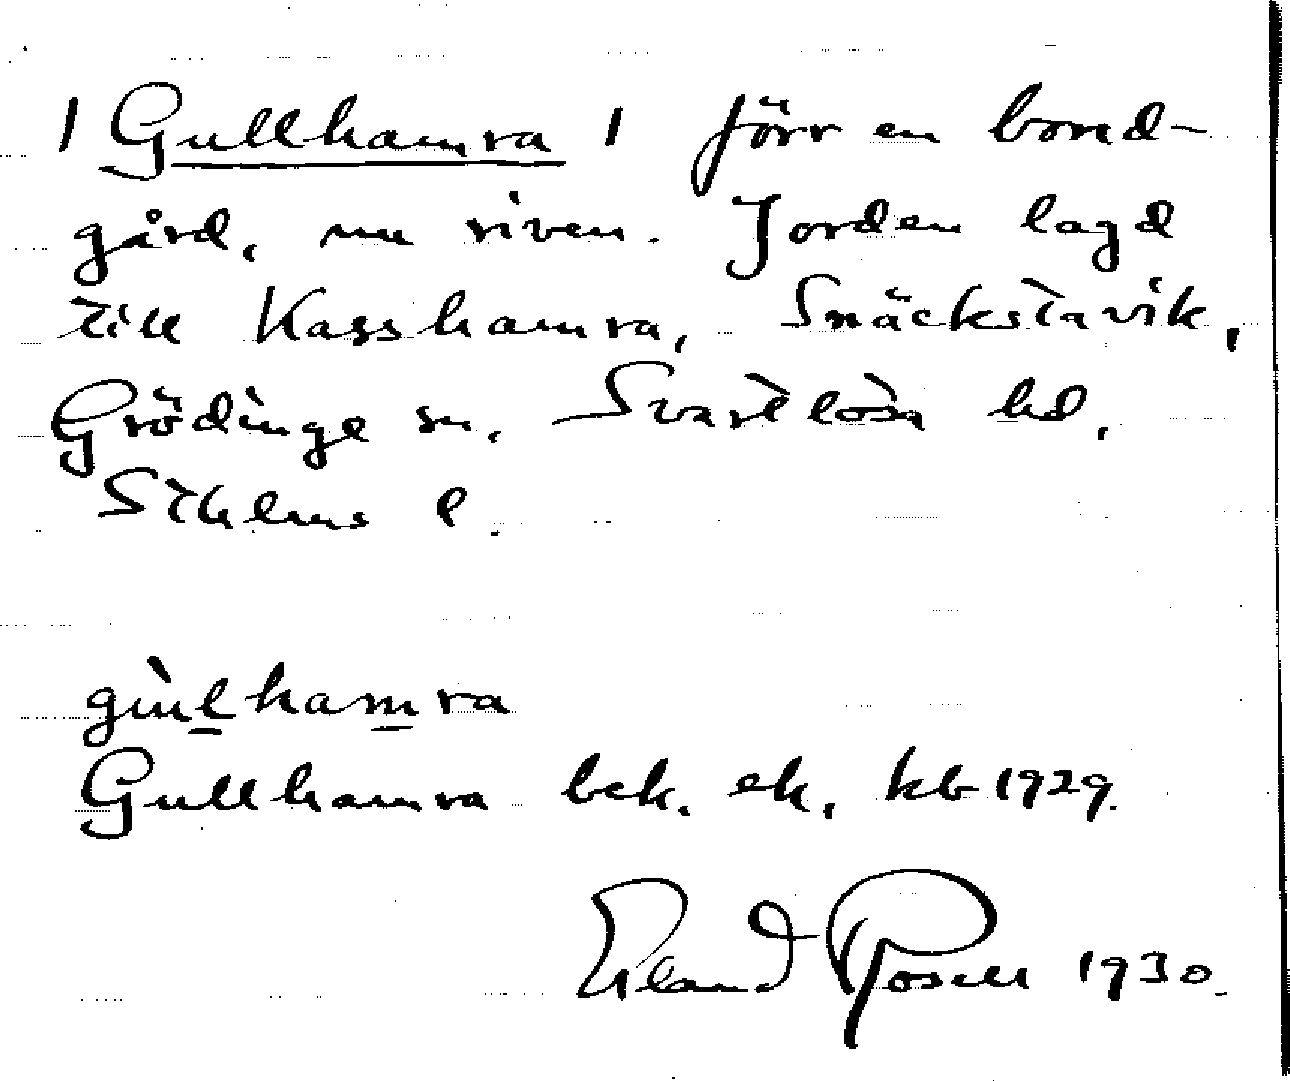 | Gullhamra | förr en bond-
gård, nu riven. Jorden lagd
till Kasshamra, Snäckstavik,
Grödinge sn. Svartlösa hd,
Sthlms l.
gùlhamra
Gullhamra bek. ek. kb 1929.
Erland Rosell 1930.